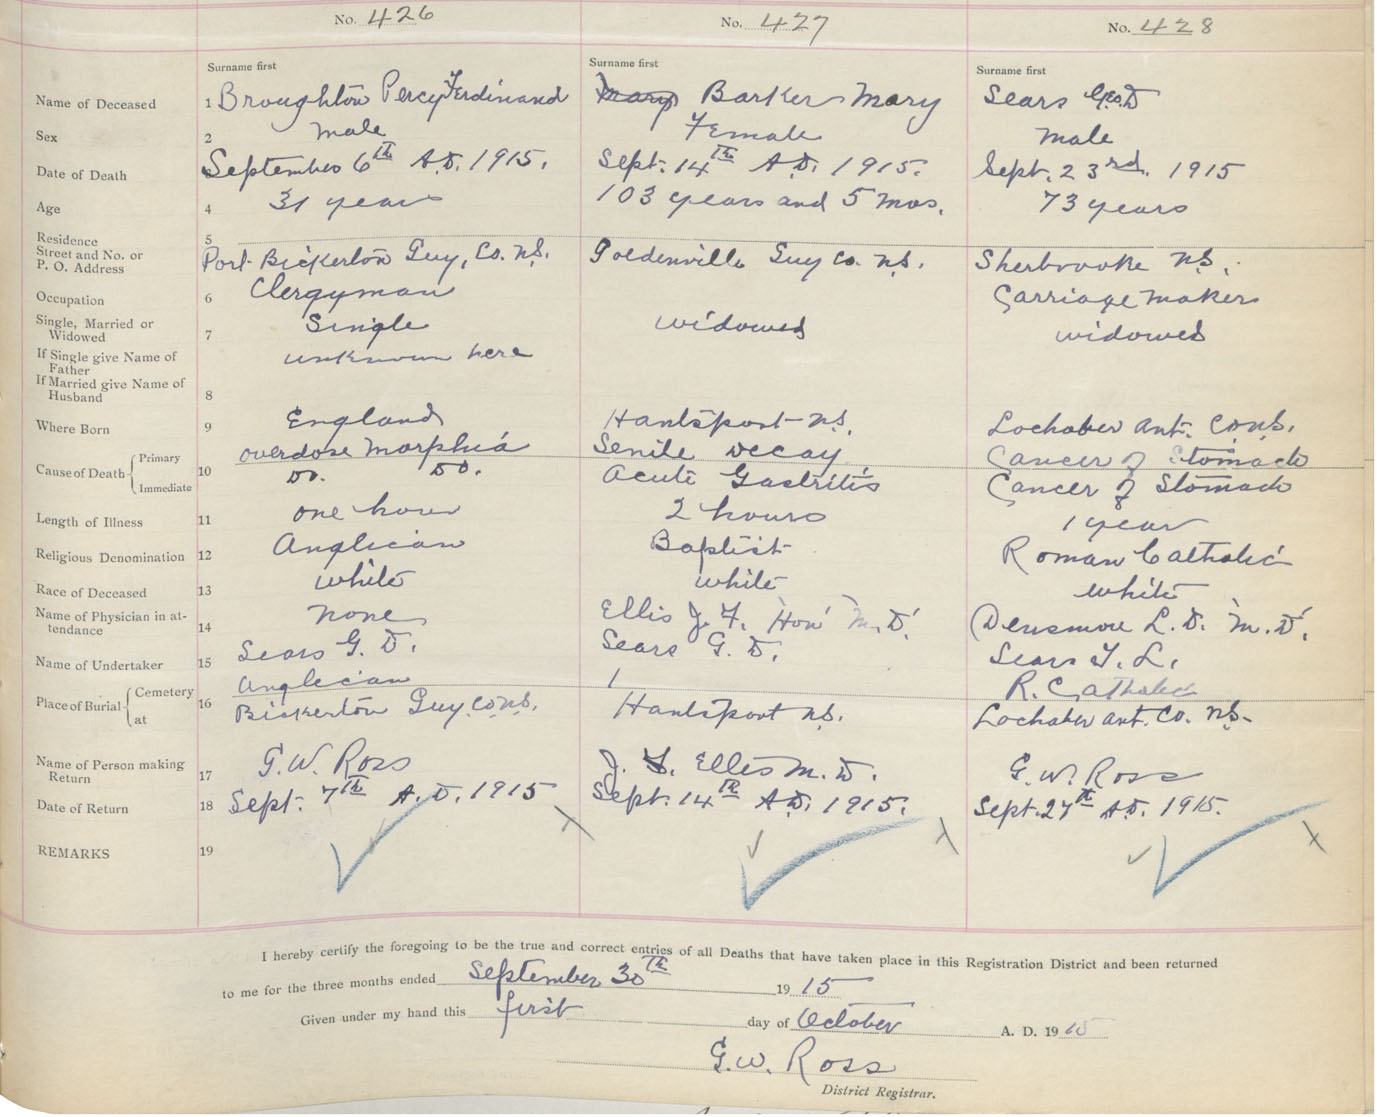 No. 426 No. 427 No. 428
Surname first Surname first Surname first
Name of Deceased 1 Broughton Percy Ferdinand Mary Barker Mary Sears Geo. D
Sex 2 male Female male
Date of Death 3 September 6th A.D. 1915. Sept. 14th A.D. 1915. Sept. 23rd. 1915
Age 4 31 years 103 years and 5 mos. 73 years
Residence 5
Street and No. or
P. O. Address Port Bickerton Guy, Co. N.S. Goldenville Guy Co. N.S. Sherbrooke N.S.
Occupation 6 Clergyman Carriage maker
Single, Married or
Widowed 7 Single widowed widowed
If Single give Name of
Father unknown here
If Married give Name of
Husband 8
Where Born 9 England Hantsport N.S. Lochaber Ant. Co N.S.
Cause of Death Primary 10 overdose morphia Senile Decay Cancer of Stomach
Immediate Do. Do. Acute Gastritis Cancer of Stomach
Length of Illness 11 one hour 2 hours 1 year
Religious Denomination 12 Anglican Baptist Roman Catholic
Race of Deceased 13 white white white
Name of Physician in at-
tendance 14 none Ellis J. F. "Hon" "M.D." Densmore L. D. "M.D."
Name of Undertaker 15 Sears G. D. Sears G. D. Sears F. L.
Place of Burial Cemetery 16 Anglican R. Catholic
at Bickerton Guy Co N.S. Hantsport N.S. Lochaber Ant. Co. N.S.
Name of Person making
Return 17 G.W. Ross J. F. Ellis M.D. G. W. Ross
Date of Return 18 Sept. 7th A.D. 1915 Sept. 14th A.D. 1915. Sept. 27th A.D. 1915.
REMARKS 19
I hereby certify the foregoing to be the true and correct entries of all Deaths that have taken place in this Registration District and been returned
to me for the three months ended September 30th 19 15
Given under my hand this first day of October A. D. 19 15
G. W. Ross
District Registrar.